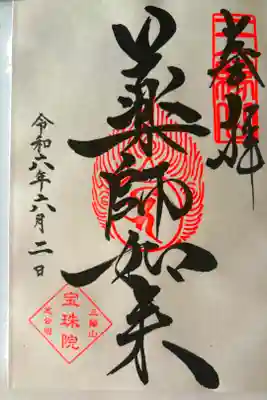 奉拝
薬師如来
令和六年六月二日
三縁山
宝珠院
芝公園